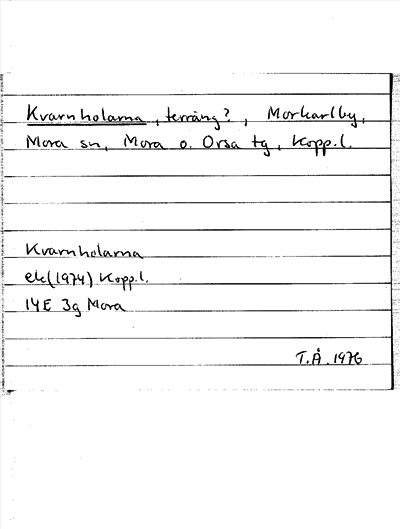 Kvarnholarna, terräng?, Morkarlby,
Mora sn, Mora o. Orsa tg, Kopp.l.
Kvarnholarna
ek(1974) Kopp.l.
14E 3g Mora
T.Å. 1976